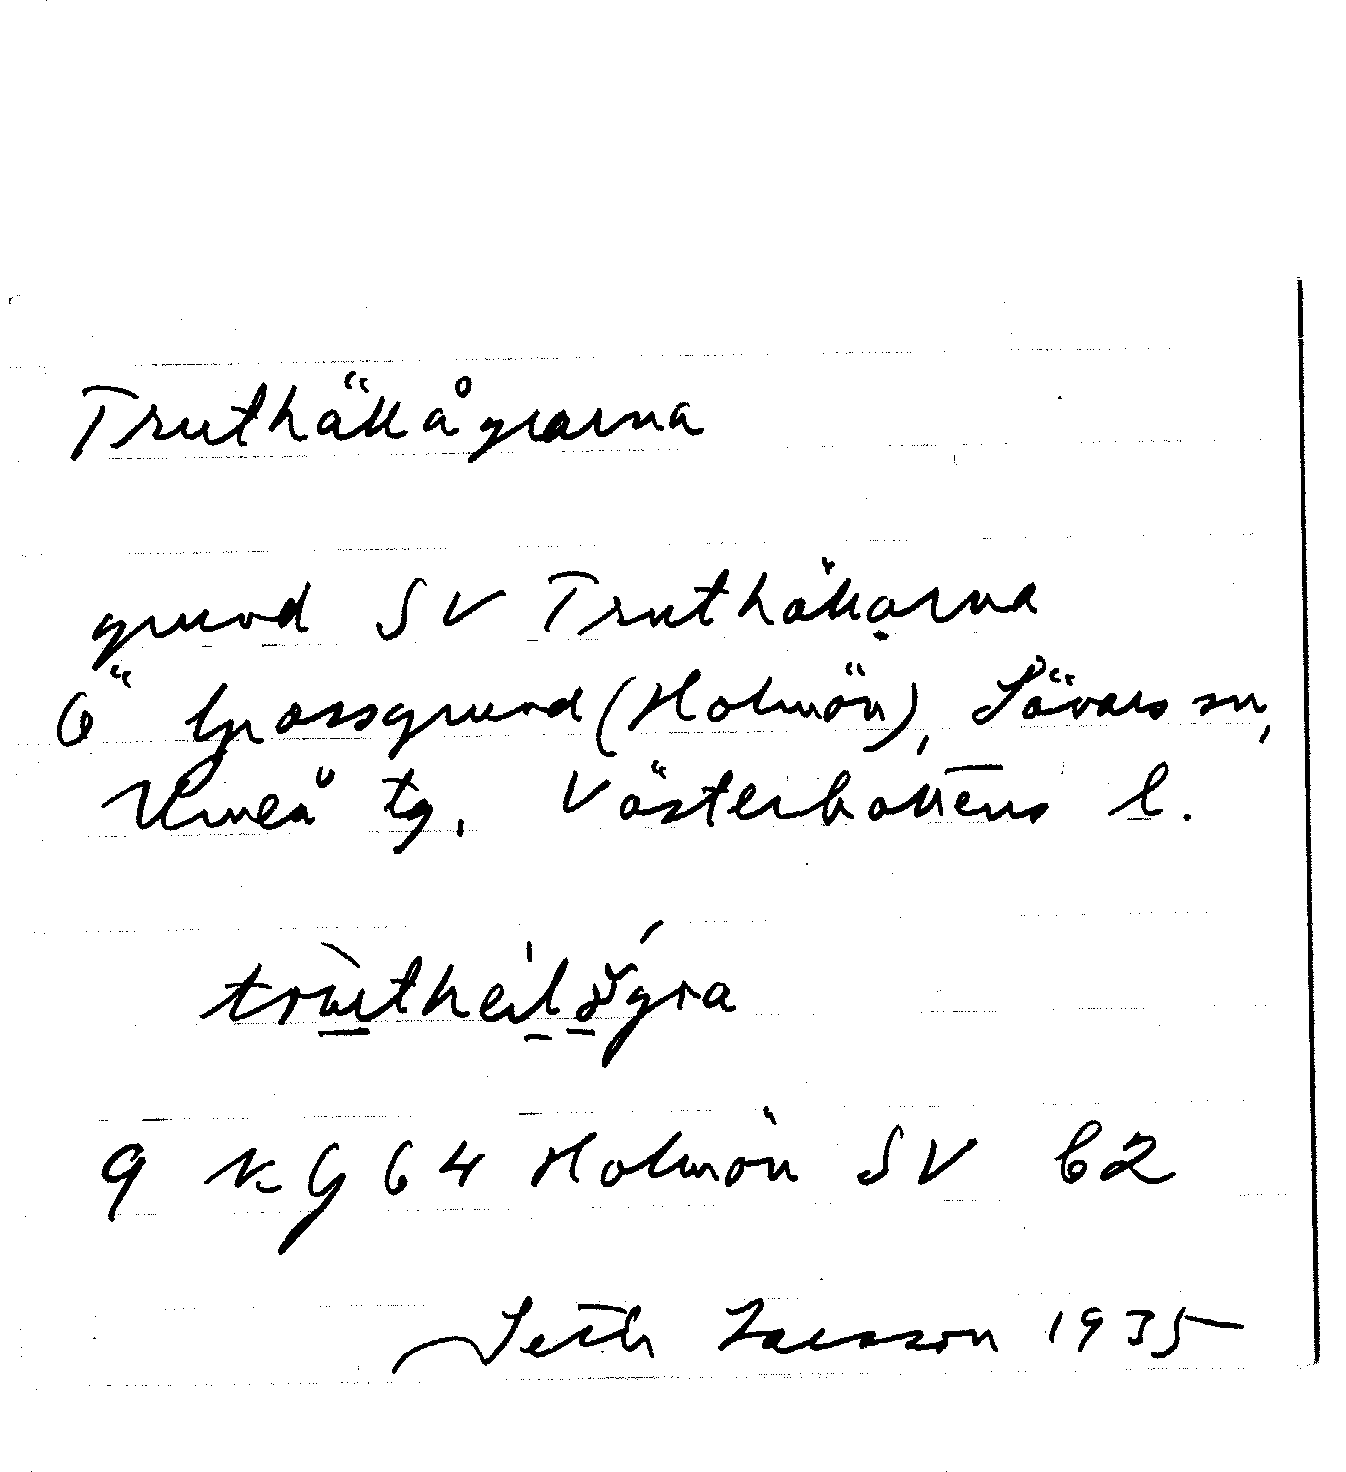 Truthällågrarna
grund SV Truthällarna
Ö Grossgrund (Holmön), Sävars sn,
Umeå tg. Västerbottens l.
9 kg 64 Holmön SV 62
Seth Larsson 1935